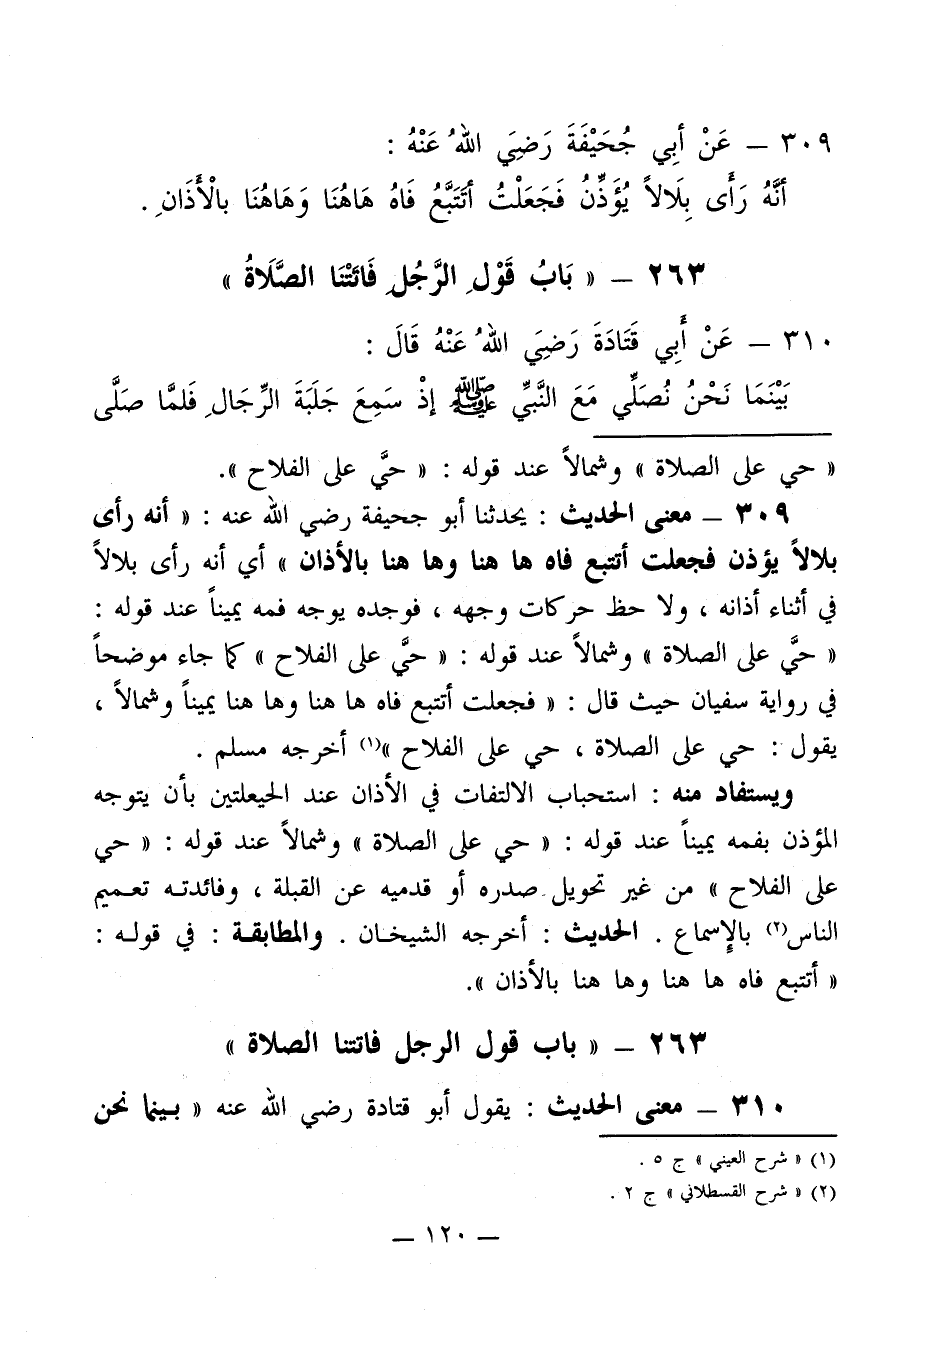 ٣٠٩ ــ عَنْ أَبِي جُحَيْفَةَ رَضِيَ اللهُ عَنْهُ :
أَنَّهُ رَأَى بِلَالاً يُؤَذِّنُ فَجَعَلْتُ أَتَتَبَّعُ فَاهُ هَاهُنَا وَهَاهُنَا بِالْأَذَانِ .
٢٦٣ ــ « بَابُ قَوْلِ الرَّجُلِ فَاتَتْنَا الصَّلَاةُ »
٣١٠ ــ عَنْ أَبِي قَتَادَةَ رَضِيَ اللهُ عَنْهُ قَالَ :
بَيْنَمَا نَحْنُ نُصَلِّي مَعَ النَّبِيِّ ﷺ إِذْ سَمِعَ جَلَبَةَ الرِّجَالِ فَلمَّا صَلَّى
« حي على الصلاة » وشمالاً عند قوله : « حيَّ على الفلاح ».
٣٠٩ ــ معنى الحديث : يحدثنا أبو جحيفة رضي الله عنه : « أنه رأى
بلالاً يؤذن فجعلت أتتبع فاه ها هنا وها هنا بالأذان » أي أنه رأى بلالاً
في أثناء أذانه ، ولا حظ حركات وجهه ، فوجده يوجه فمه يميناً عند قوله :
« حيَّ على الصلاة » وشمالاً عند قوله : « حيَّ على الفلاح » كما جاء موضحاً
في رواية سفيان حيث قال : « فجعلت أتتبع فاه ها هنا وها هنا يميناً وشمالاً ،
يقول : حي على الصلاة ، حي على الفلاح »(١) أخرجه مسلم .
ويستفاد منه : استحباب الالتفات في الأذان عند الحيعلتين بأن يتوجه
المؤذن بفمه يميناً عند قوله : « حي على الصلاة » وشمالاً عند قوله : « حي
على الفلاح » من غير تحويل صدره أو قدميه عن القبلة ، وفائدته تعميم
الناس(٢) بالإسماع . الحديث : أخرجه الشيخان . والمطابقة : في قوله :
« أتتبع فاه ها هنا وها هنا بالأذان ».
٢٦٣ ــ « باب قول الرجل فاتتنا الصلاة »
٣١٠ ــ معنى الحديث : يقول أبو قتادة رضي الله عنه « بينما نحن
(١) « شرح العيني » ج ٥ .
(٢) « شرح القسطلاني » ج ٢ .
ــ ١٢٠ ــ